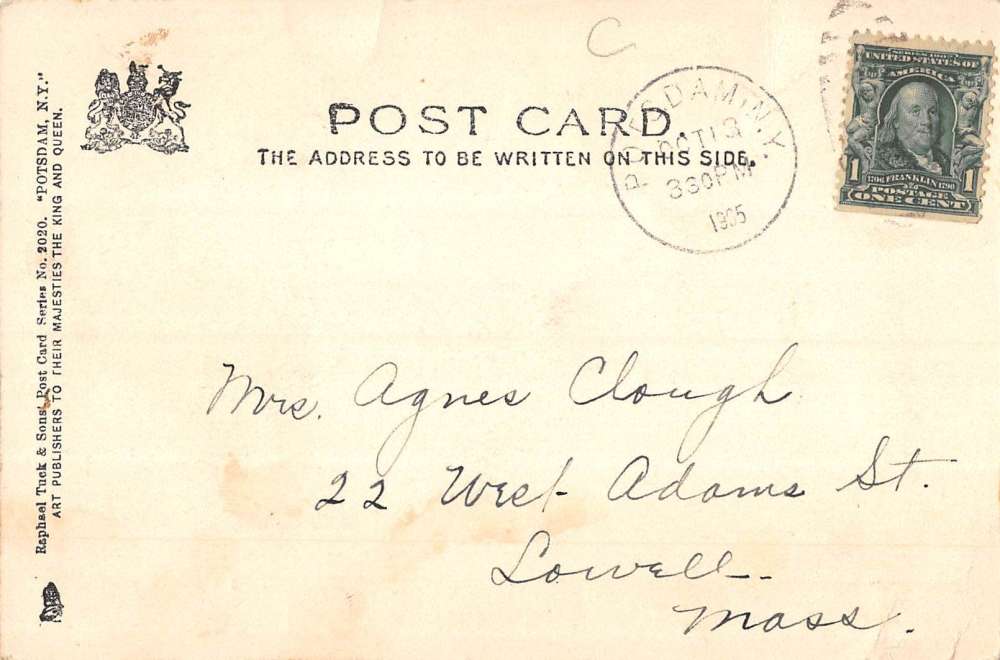 C
POST CARD.
THE ADDRESS TO BE WRITTEN ON THIS SIDE.
Raphael Tuck & Sons' Post Card Series No. 2020. "POTSDAM, N.Y."
ART PUBLISHERS TO THEIR MAJESTIES THE KING AND QUEEN.
POTSDAM, N.Y.
OCT 13
330PM
1905
SERIES 1902
UNITED STATES OF
AMERICA
1706 FRANKLIN 1790
1 POSTAGE 1
ONE CENT
Mrs. Agnes Clough
22 West Adams St.
Lowell.
Mass.